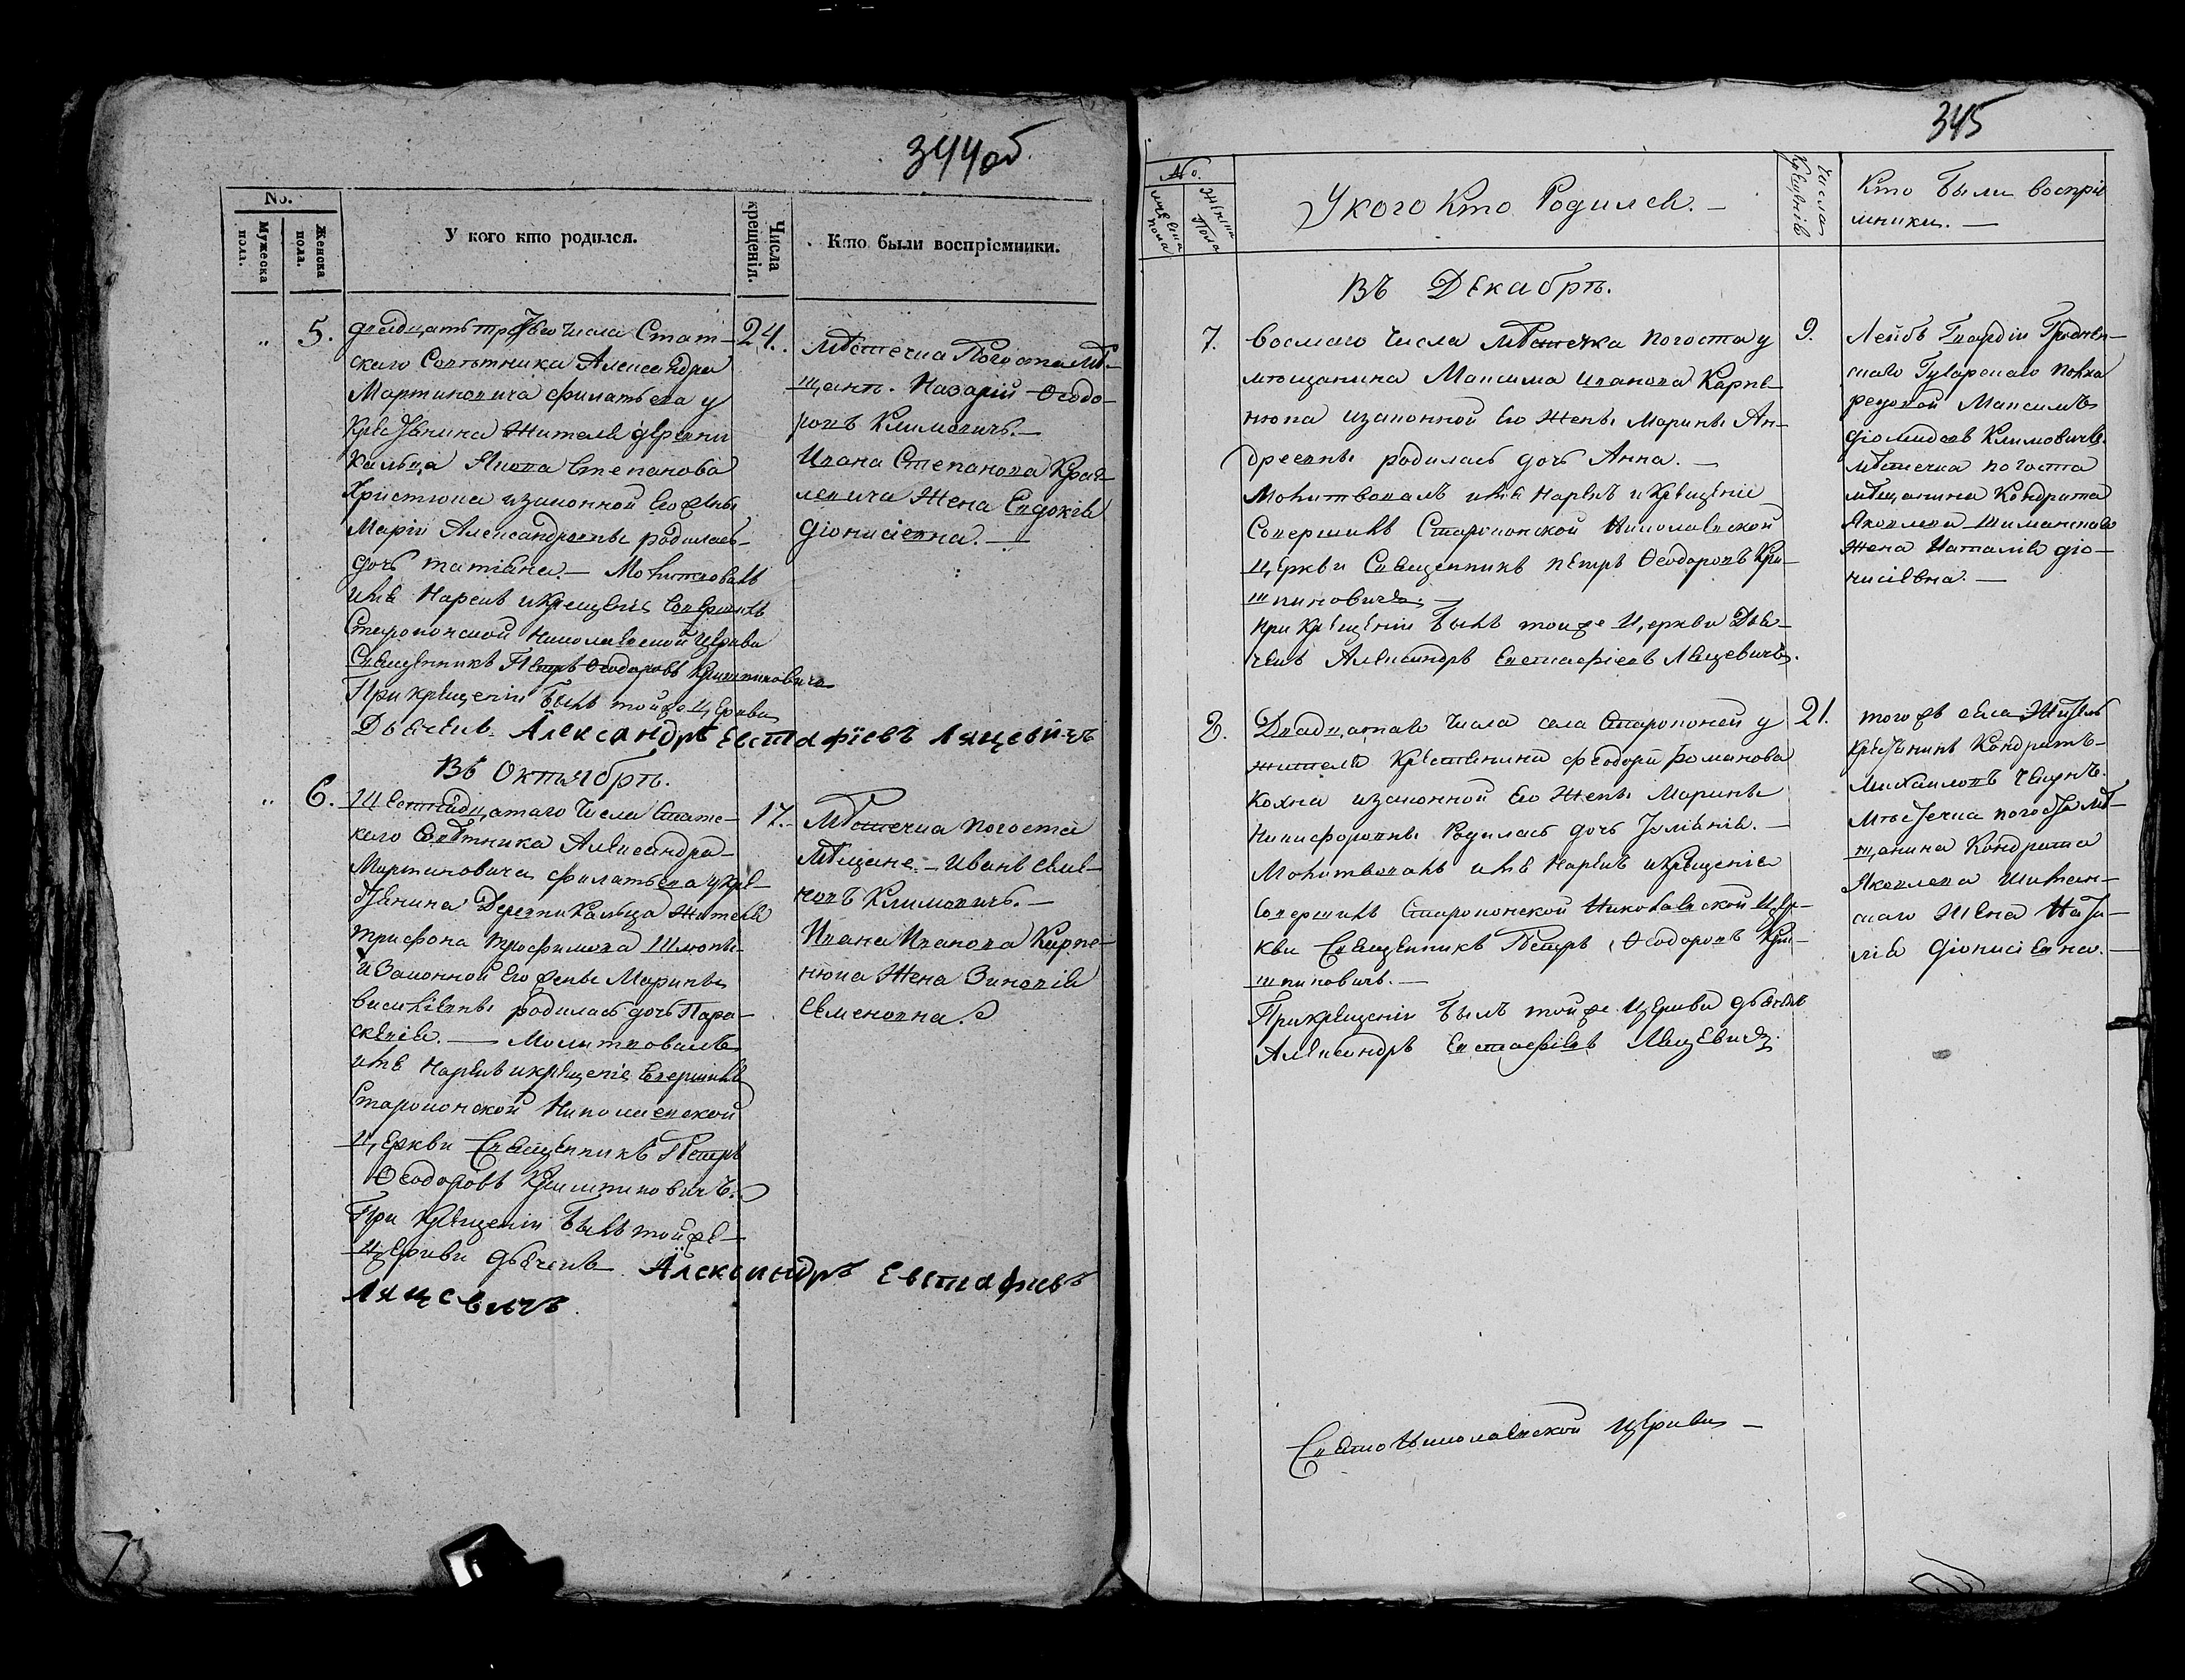 344об.
No.
Мужеска пола.
Женска пола.
У кого кто родился.
Числа крещенія.
Кто были воспріемники.
5.
двадцать третьго числа Стат-
скаго Совѣтника Александра
Мартиновича Филатьева у
жителя деревни
Кальца Степанова
изаконной его жены
Маріи Александровны родилась
дочь татіяна. — Молитвовалъ
имя Нарекъ икрещеніе Совершилъ
Николаевской Церкви
Священникъ Петръ Ѳеодоровъ
При крещеніи былъ тойже Церкви
Дьячекъ Александръ Евстафіевъ Ляцевичъ
24.
Мѣстечка Погоста Мѣ-
щанъ. Назарій Ѳеодо-
ровъ Климовичъ. —
Ивана Степанова
жена Евдокія
Діонисіевна. —
Въ Октябрѣ.
6.
Шестнадцатаго числа Статс-
каго Совѣтника Александра
Мартиновича Филатьева укре-
стьянина Деревни Кальца жителя
трифона трофимова
изаконной его жены Марины
василіевны родилась дочь Пара-
скевія. — Молитвовалъ
имя Нарекъ икрещеніе Совершилъ
Николаевской
Церкви Священникъ Петръ
Ѳеодоровъ
При крещеніи былъ тойже
Церкви дьячекъ Александръ Евстафиевъ
Ляцевичъ.
17.
Мѣстечка погоста
Мѣщане. — Иванъ Семе-
новъ Климовичъ. —
Ивана Иванова Карпе-
нюка жена Зиновія
Семеновна.
345
No.
мужеска пола
женска пола
У кого Кто Родился. —
Числа Крещенія
Кто были воспріе
мники. —
Въ Декабрѣ.
7.
восмаго числа Мѣстечка погоста у
мѣщанина Максима иванова Карпе-
нюка изаконной его жены Марины Ан-
дреевны родилась дочь Анна. —
Молитвовалъ имя Нарекъ икрещеніе
Совершилъ Николаевской
Церкви Священникъ петръ Ѳеодоровъ Кри-
шпиновичъ. —
При крещеніи былъ тойже Церкви Дья-
чекъ Александръ Евстафіевъ Ляцевичъ.
9.
Лейбъ Гвардіи Гроднен-
скаго Гусарскаго полка
рядовой Максимъ
діомидовъ Климовичъ.
мѣстечка погоста
мѣщанина Кондрата
Яковлева Шиманскаго
жена Наталія діо-
нисіевна. —
8.
Двадцатаго числа села у
жителя крестьянина феодора романова
изаконной его жены Марины
Никифоровны родилась дочь Іуліанія. —
Молитвовалъ имя Нарекъ икрещеніе
Совершилъ Николаевской Цер-
кви Священникъ Петръ Ѳеодоровъ Кри-
шпиновичъ. —
При крещеніи былъ тойже Церкви дьячекъ
Александръ Евстафіевъ Ляцевичъ.
21.
тогожъ села житель
крестьянинъ Кондратъ
Михаиловъ
Мѣстечка погоста мѣ-
щанина Кондрата
Яковлева Шиман-
скаго жена Ната-
лія діонисіевна. —
Свято Николаевской Церкви —